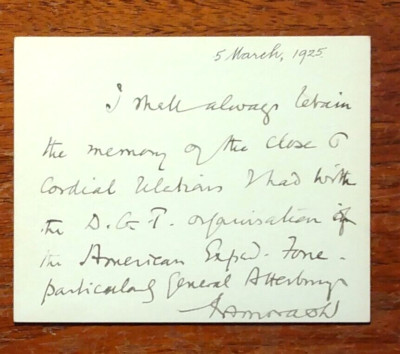 5 March, 1925.
I shall always retain
the memory of the close &
Cordial relations I had with
the D.G.T. organisation of
the American Exped. Force -
particularly General Atterbury